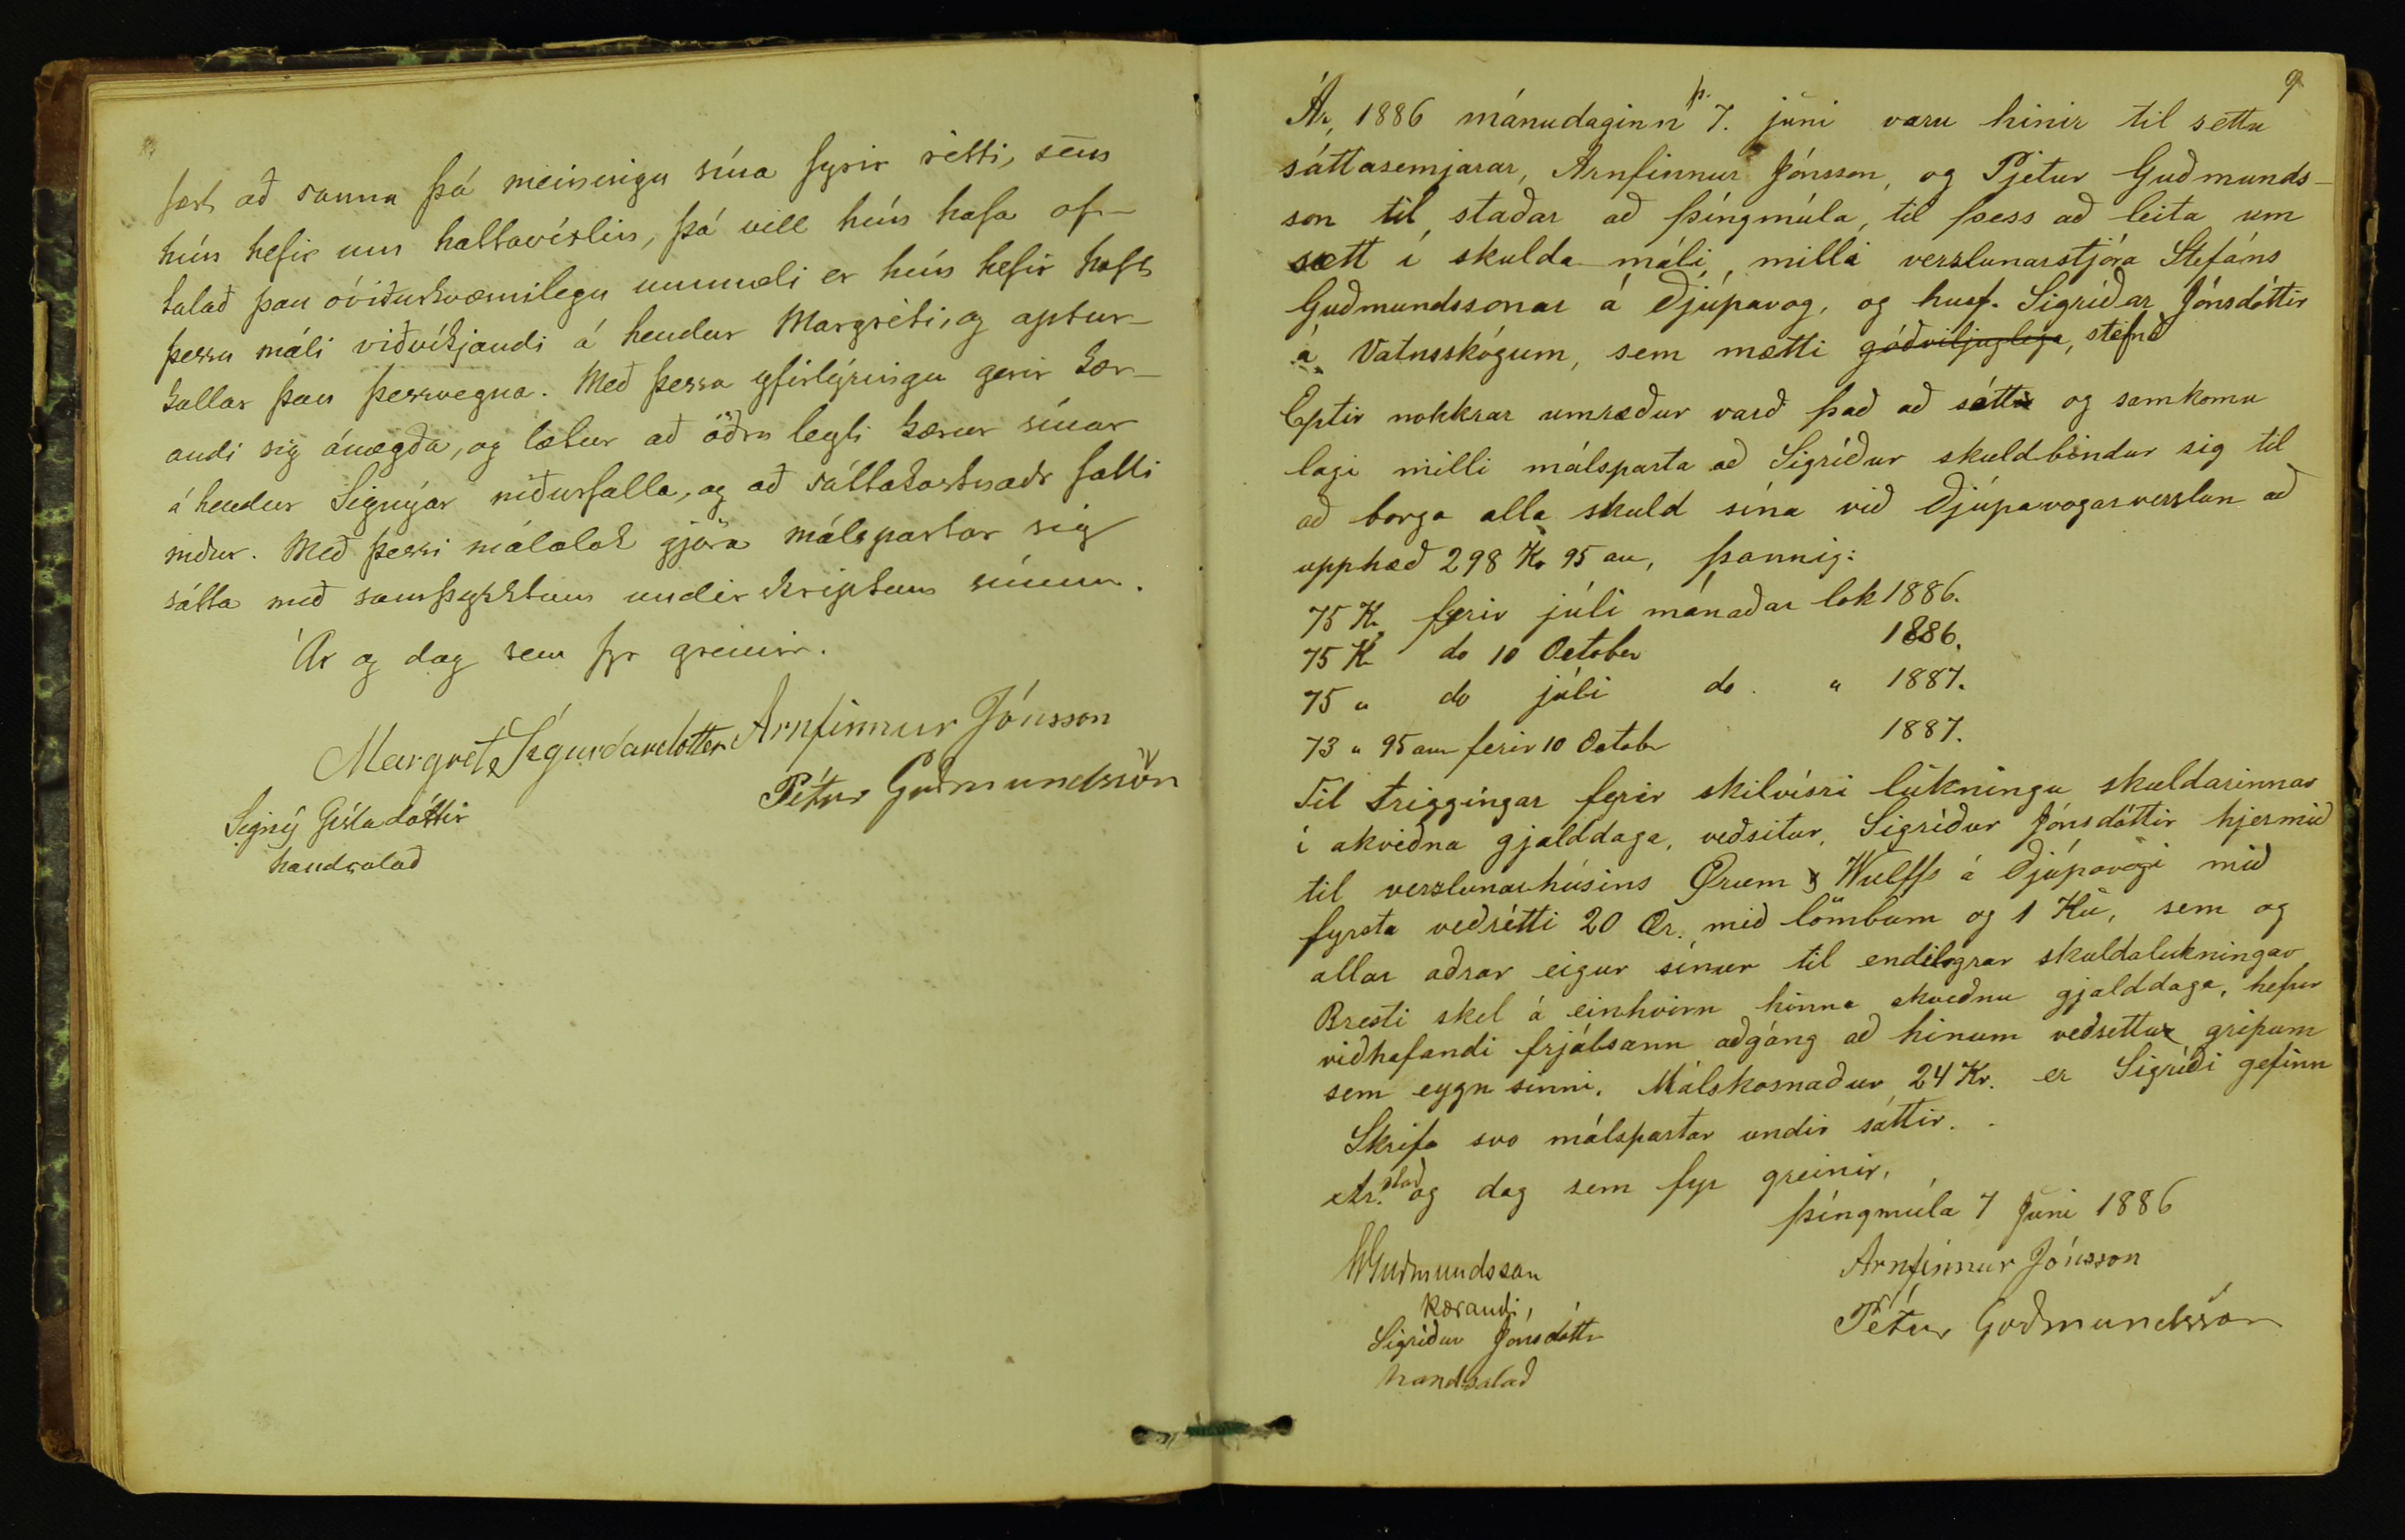 fært að sanna þá meiningu sína fyrir rétti, sem
hún hefir um hattavíslin, þá vill hún hafa of-
talað þau óviðurkvæmilegu ummæli er hún hefir haft
þessu máli viðvíkjandi á hendur Margréti, og aptur-
kallar þau þessvegna. Með þessa yfirlýsingu gerir kær-
andi sig ánægða, og lætur að öðru leyti kærur sínar
á hendur Signýar niðurfalla, og að sáttakostnaðr falli
niður. Með þessi málalok gjöra málspartar sig
sátta með samþykktum undirskriptum sínum.
Ár og dag sem fyr greinir.
Margret Sigurdardotter Arnfinnur Jónsson
Pétur Guðmundsson
Signý Gísladóttir
handsalað
9
Ár, 1886 mánudaginn þ. 7. júni voru hinir til settu
sáttasemjarar, Arnfinnur Jónsson, og Pjetur Guðmunds-
son til staðar að Þíngmúla, til þess að leita um
sætt í skulda máli, milli verzlunarstjóra Stefáns
Guðmundssonar á Djúpavog, og husf. Sigríðar Jónsdóttir
á Vatnsskógum, sem mætti góðviljuglega, stefnd
Eptir nokkrar umræður varð það að sátt og samkomu
lagi milli málsparta að Sigríður skuldbindur sig til
að borga alla skuld sína við Djúpavogarverzlun að
upphæð 298 Kr 95 au, þannig:
75 Kr. fyrir júlí mánaðar lok 1886.
75 Kr do 10 October 1886.
75 " do júlí do. " 1887.
73 " 95 au ferir 10 Octobr 1887.
Til triggíngar fyrir skilvísri lúkningu skuldarinnar
í akveðna gjalddaga, veðsetur, Sigríður Jónsdóttir hjermeð
til verzlunarhúsins Ørum & Wulffs á Djúpavogi með
fyrsta veðrétti 20 Ær. með lömbum og 1 Kú, sem og
allar aðrar eigur sínar til endilegrar skuldalukningar
Bresti skil á einhvörn hinna akveðnu gjalddaga, hefur
viðhafandi frjálsann aðgáng að hinum veðsettu gripum
sem eygn sinni. Málskosnaður 24 Kr. er Sigríði gefinn
Skrifa svo málspartar undir sáttir.
Ár. stað og dag sem fyr greinir.
Þíngmúla 7 Júni 1886
Guðmundsson Arnfinnur Jónsson
kærandi, Pétur Guðmundsson
Sigríður Jónsdóttr
handsalað